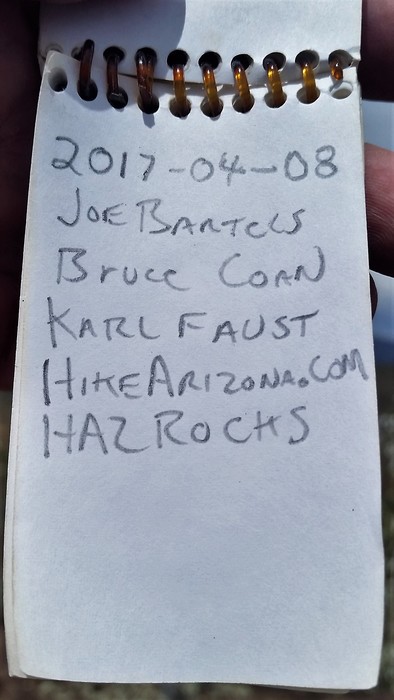 2017-04-08
Joe Bartels
Bruce Conn
Karl Faust
HikeArizona.com
HAZ Rocks